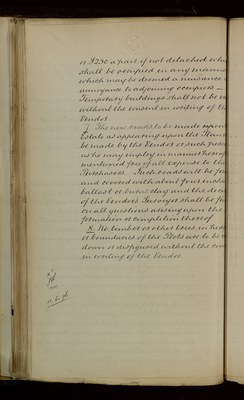 or £250 a pair if not detached
shall be occupied in any manner
which may be deemed a nuisance or
annoyance to adjoining occupiers —
Temporary buildings shall not be
without the consent in writing of the
Vendor
7. The new roads to be made upon
Estate as appearing upon the Plan
be made by the Vendor or such person
as he may employ in manner hereinafter
mentioned free of all expense to the
Purchasers. Such roads will be
and covered with about four inches
ballast or burnt clay and the
of the Vendors Surveyor shall be
on all questions arising upon the
formation or completion thereof
8. No timber or other trees in hedges
or boundaries of the Plots are to be
down or disfigured without the
in writing of the Vendor